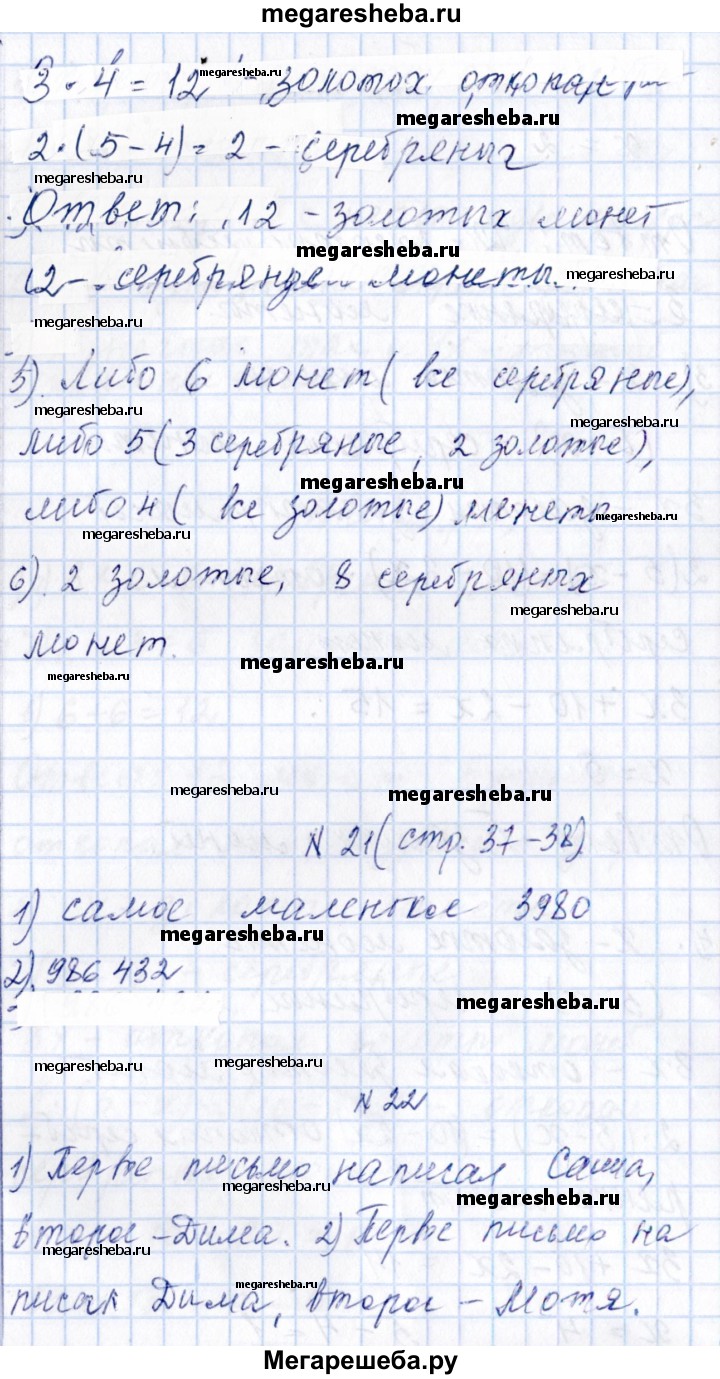 megaresheba.ru
3 · 4 = 12 - золотых откопал
megaresheba.ru
megaresheba.ru
2·(5-4)=2 - серебряных
megaresheba.ru
Ответ: 12 - золотых монет
megaresheba.ru
2 - серебряные монеты.
megaresheba.ru
megaresheba.ru
5). Либо 6 монет ( все серебряные),
megaresheba.ru
megaresheba.ru
либо 5 ( 3 серебряные, 2 золотые),
megaresheba.ru
либо 4 ( все золотые) монеты
megaresheba.ru
megaresheba.ru
6). 2 золотые, 8 серебряных
megaresheba.ru
монет.
megaresheba.ru
megaresheba.ru
megaresheba.ru
megaresheba.ru
N 21 ( стр. 37-38)
1) самое маленькое 3980
megaresheba.ru
2). 986 432
megaresheba.ru
megaresheba.ru
megaresheba.ru
N 22
1) Первое письмо написал Саша,
megaresheba.ru
megaresheba.ru
второе - Дима. 2) Первое письмо на
megaresheba.ru
megaresheba.ru
писал Дима, второе - Мотя.
Мегарешеба.ру